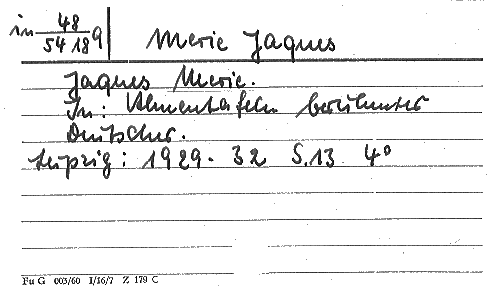 in 48
5418 q
Merie Jaques
Jaques Merie.
In: Ahnentafeln berühmter
Deutscher.
Leipzig: 1929-32 S.13 4°
Fu G 003/60 I/16/7 Z 179 C